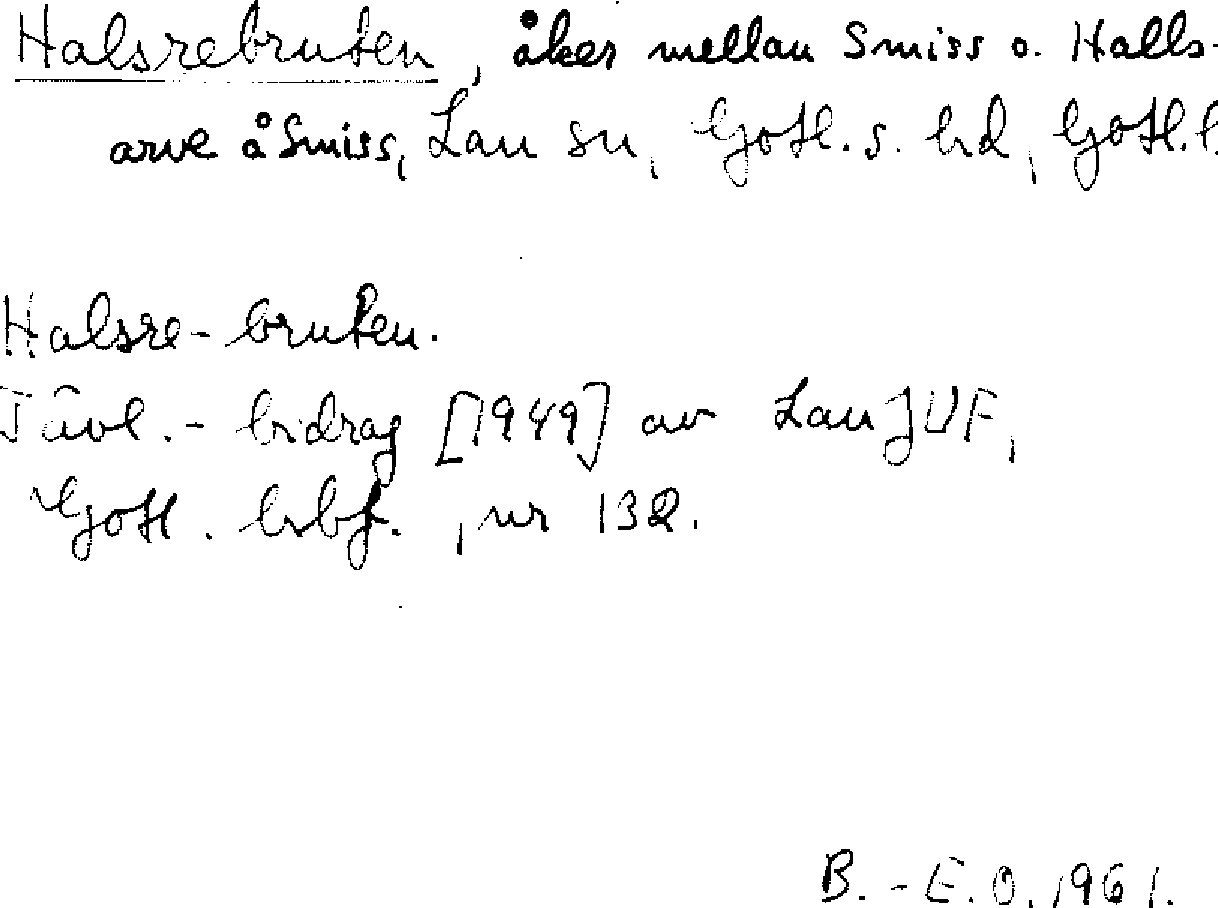 Halsrebruten, åker mellan Smiss o. Halls-
arve å Smiss, Lau sn, Gotl. s. hd, Gotl. l.
Halsre-bruten.
Tävl.-bidrag [1949] av Lau JUF,
Gotl. hbf., nr 132.
B.-E.O. 1961.